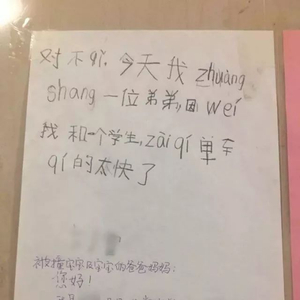 对不qǐ,今天我zhuàng
shang一位弟弟,因wéi
我和一个学生zài qí单车
qí的太快了
被撞宝宝及宝宝的爸爸妈妈:
您好!